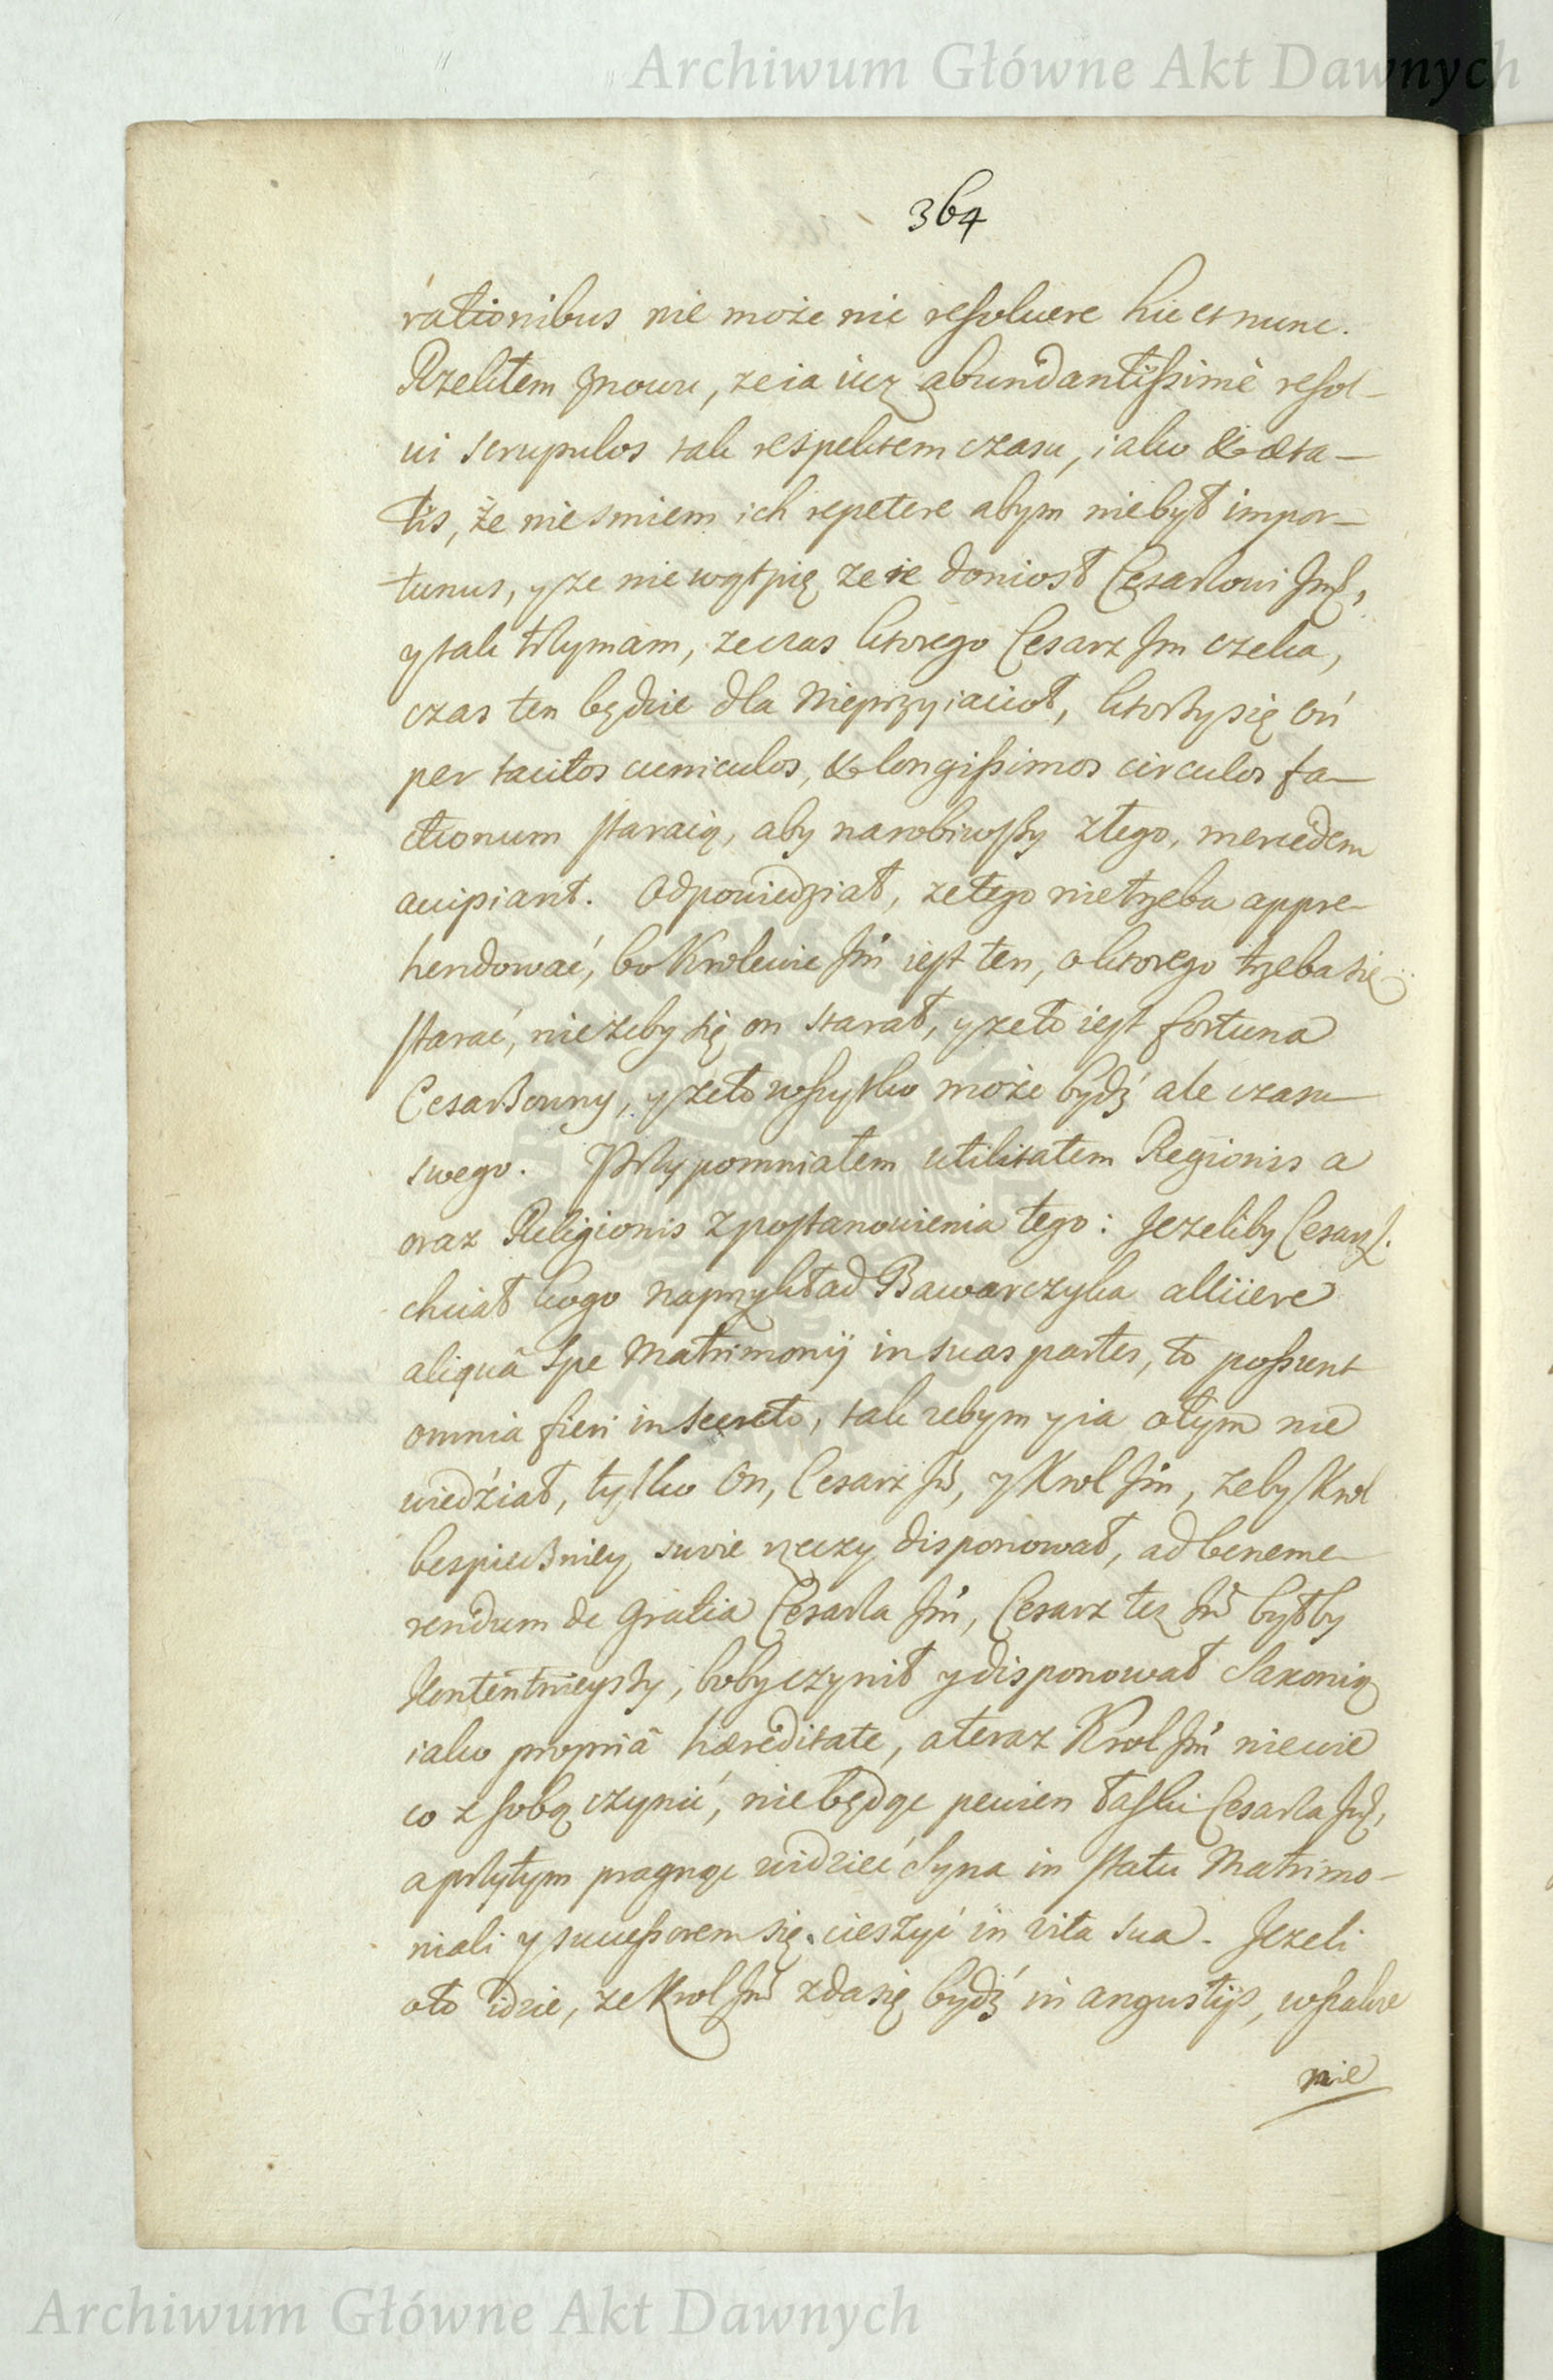 Archiwum Główne Akt Dawnych
364
rationibus nie może nic resoluere hic et nunc.
Rzekłem znowu, ze ia iuz abundantissimè resol-
ui scrupulos tak respektem czasu, iako & æta-
tis, że niesmiem ich repetere abym niebył impor-
tunus, y ze niewątpię ze ie doniosł Cesarzowi Jmć,
y tak trzymam, ze czas ktorego Cesarz Jm czeka,
czas ten będzie dla Nieprzyiacioł, ktorzy się oń
per tacitos cuniculos, & longissimos circulos fa-
ctionum staraią, aby narobiwszy złego, mercedem
accipiant. Odpowiedział, ze tego nietrzeba appre-
hendować, bo Krolewic Jm iest ten, o ktorego trzeba się
starać, nie zeby się on starał, y ze to iest fortuna
Cesarzowny, y ze to wszytko może bydź ale czasu
swego. Przypomniałem utilitatem Regionis a
oraz Religionis z postanowienia tego: Jezeliby Cesarz J.
chciał kogo naprzykład Bawarczyka allicere
aliquâ spe Matrimonij in suas partes, to possunt
omnia fieri in secreto, tak zebym y ia o tym nie
wiedział, tylko On, Cesarz Jm, y Krol Jm, zeby Krol
bespieczniey swoie rzeczy disponował, ad beneme-
rendum de gratia Cesarza Jm, Cesarz tez Jm byłby
kontentnieyszy, boby czynił y disponował Saxonią
iako propriâ hæreditate, a teraz Krol Jm niewie
co z sobą czynić, niebędąc pewien łaski Cesarza Jmć,
a przytym pragnąc widzieć Syna in statu Matrimo-
niali y successorem się cieszyć in vita sua. Jezeli
o to idzie, ze Krol Jm zda się bydź in angustijs, wszakze
nie
Archiwum Główne Akt Dawnych